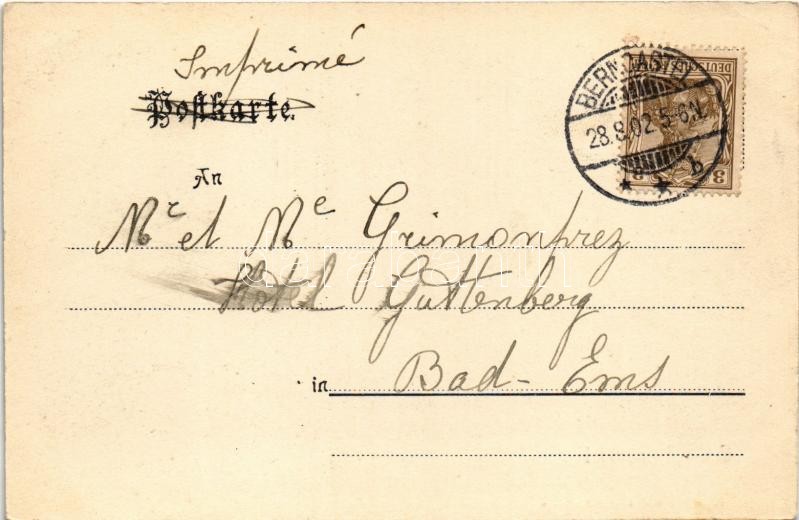 Imprimé
Postkarte.
BERNCASTEL
28.8.02.5-6N.
* * b
DEUTSCHES REICH
3 3
An
Mr et Me Grimonprez
Hotel Guttenberg
in Bad-Ems